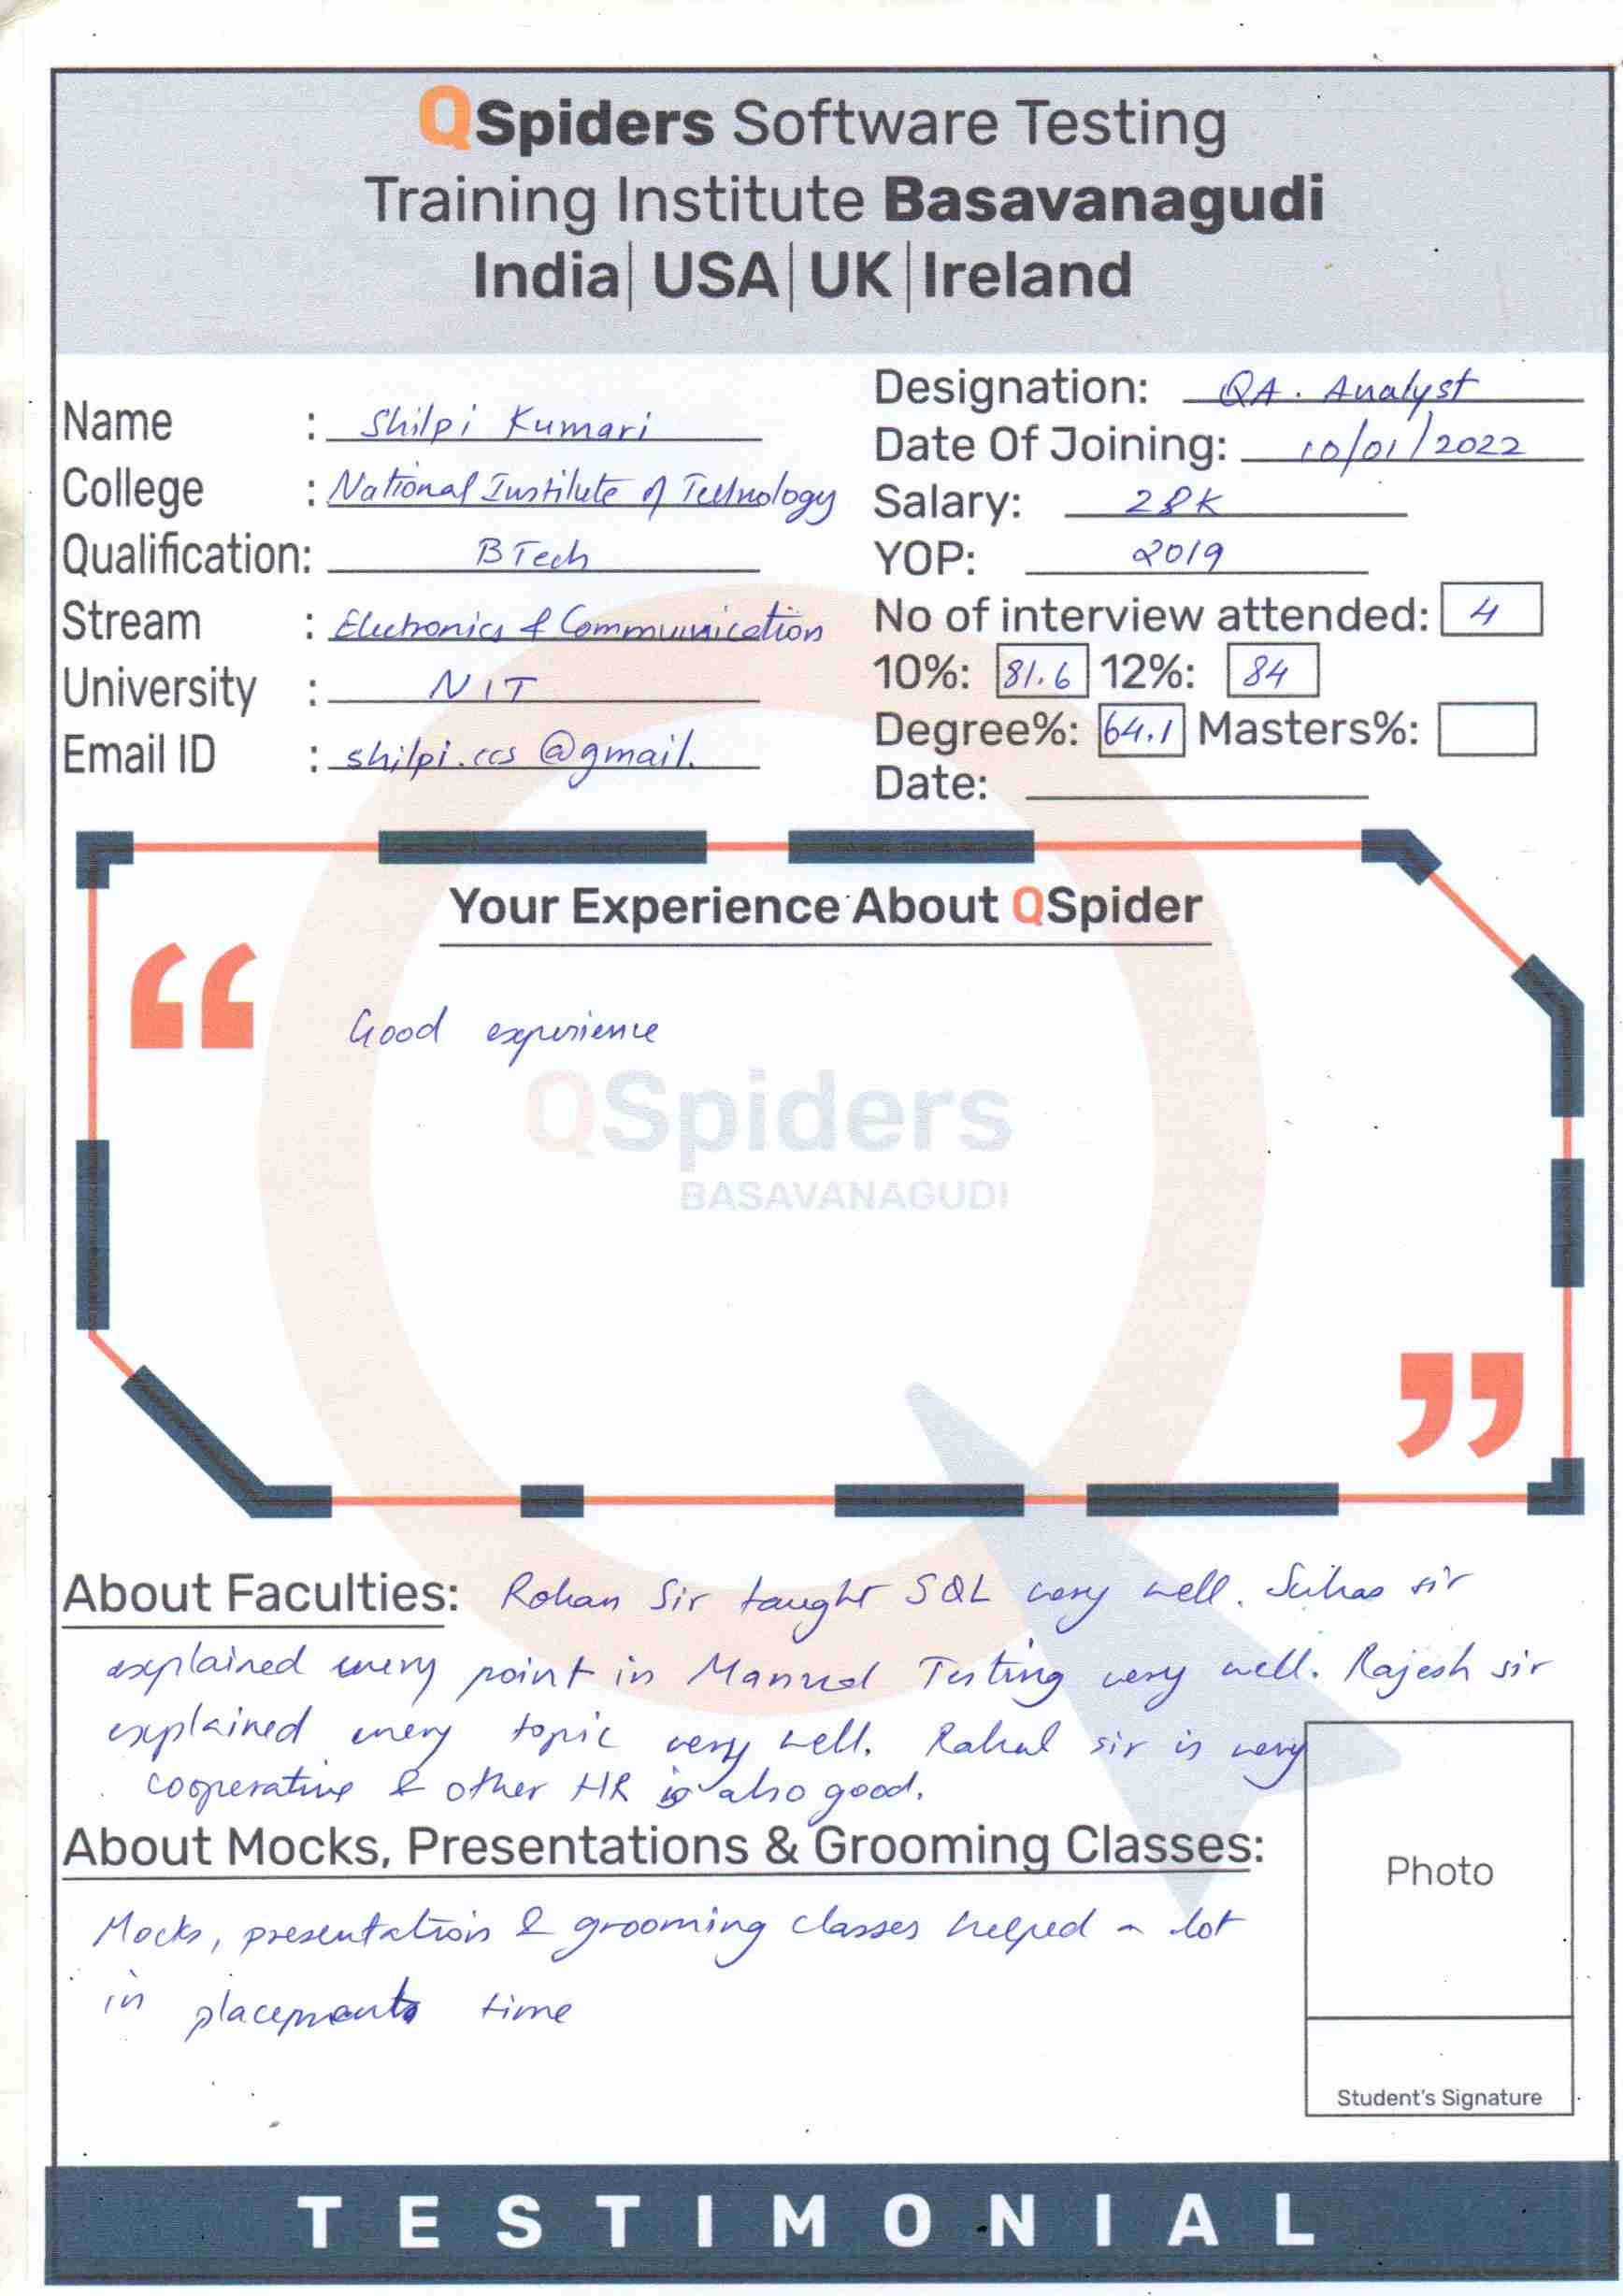 QSpiders Software Testing
Training Institute Basavanagudi
India| USA| UK|Ireland
Name : Shilpi Kumari
College : National Institute of Technology
Qualification: BTech
Stream : Electronics & Communication
University : NIT
Email ID : shilpi.ccs @gmail.
Designation: QA. Analyst
Date Of Joining: 10/01/2022
Salary: 28K
YOP: 2019
No of interview attended: 4
10%: 81.6 12%: 84
Degree%: 64.1 Masters%:
Date:
Your Experience About QSpider
“
Good experience
QSpiders
BASAVANAGUDI
”
About Faculties: Rohan Sir taught SQL very well. Suhas sir
explained every point in Manual Testing very well. Rajesh sir
explained every topic very well. Rahul sir is very
cooperative & other HR is also good.
About Mocks, Presentations & Grooming Classes:
Mocks, presentation & grooming classes helped a lot
in placements time
Photo
Student's Signature
TESTIMONIAL